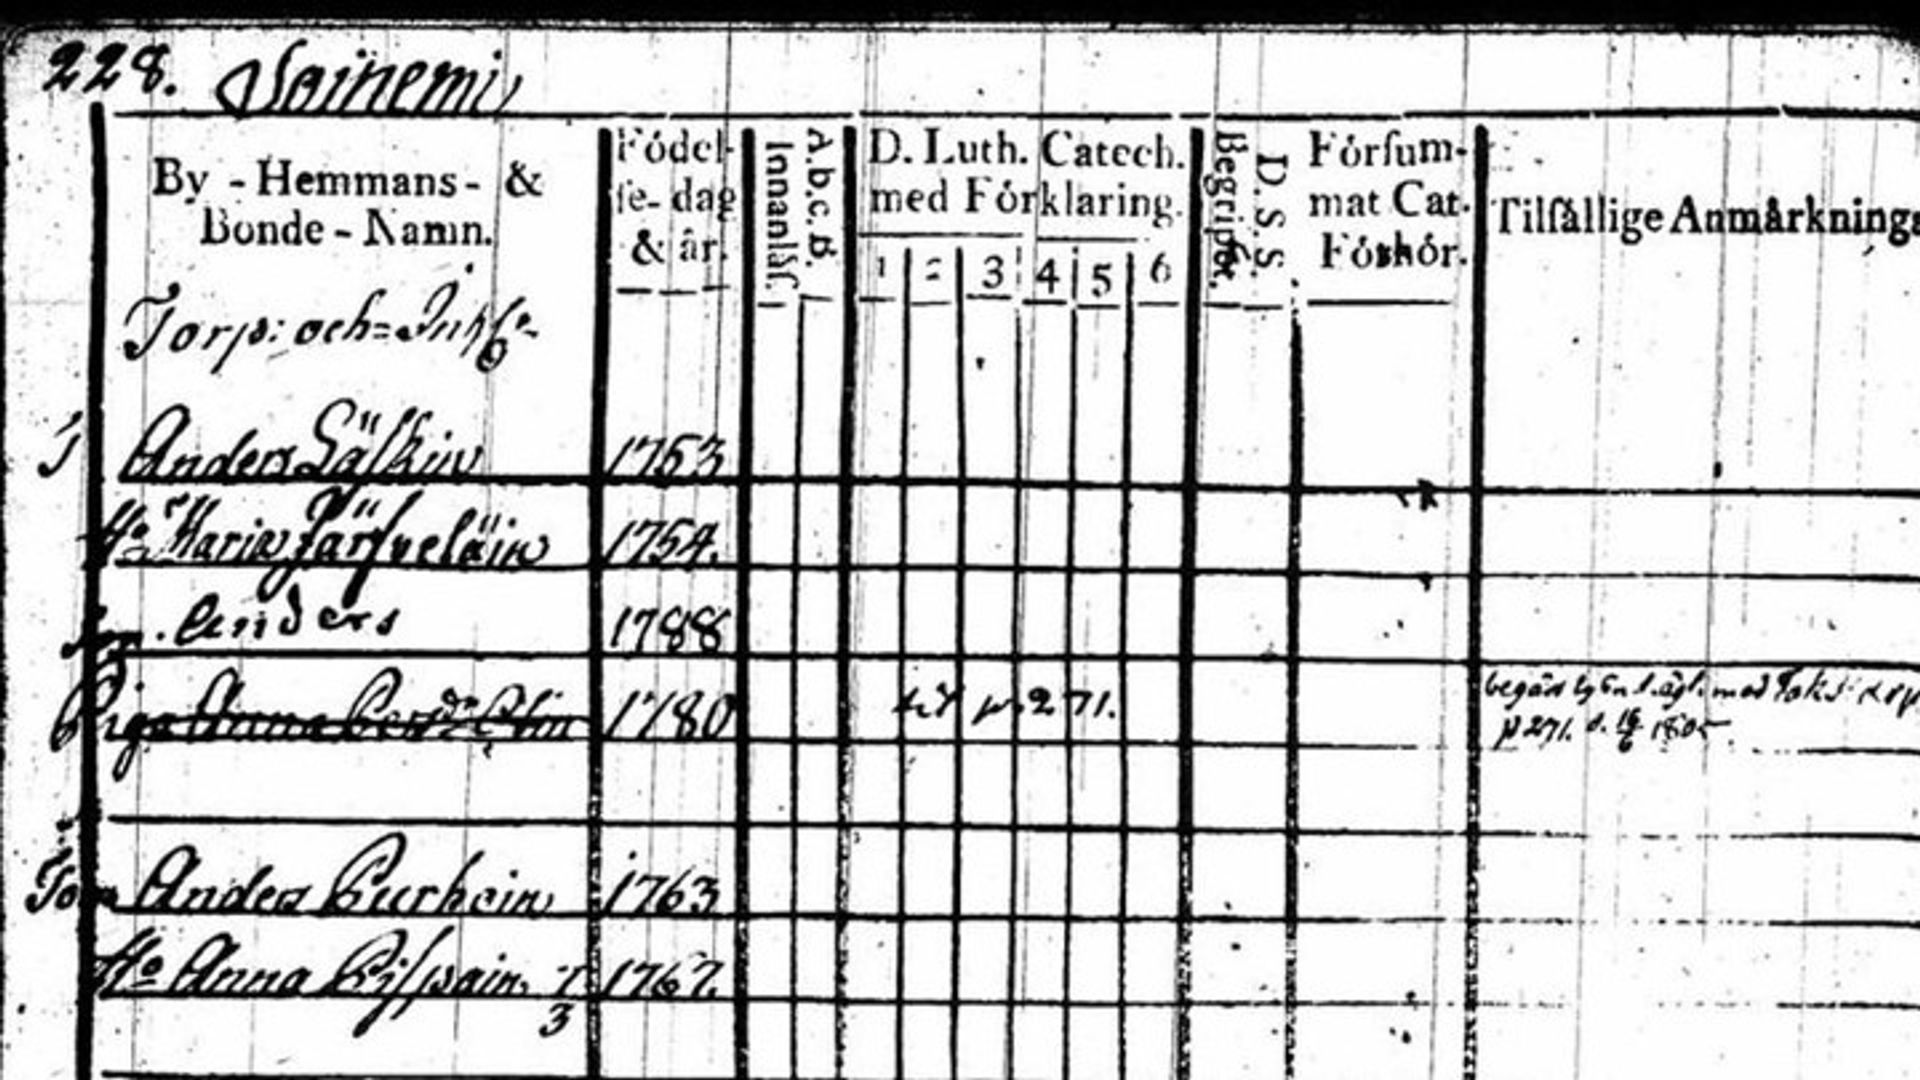 228. Soinemi
By - Hemmans - &
Bonde - Namn.
Födel-
se- dag
& år.
Innanläs.
A.b.c.B.
D. Luth. Catech.
med Förklaring.
1 2 3 4 5 6
Begript.
D. S. S.
Försum-
mat Cat.
Förhör.
Tilfällige Anmärknings
Torp: och Inh
Anders 1753
Ho Maria Järfveläin 1754.
Son. Anders 1788
Piga Anna 1780 till p. 271.
begär med
p 271. d. 16/6 1805
Anders Purhoin 1763
Ho Anna 1767.
3